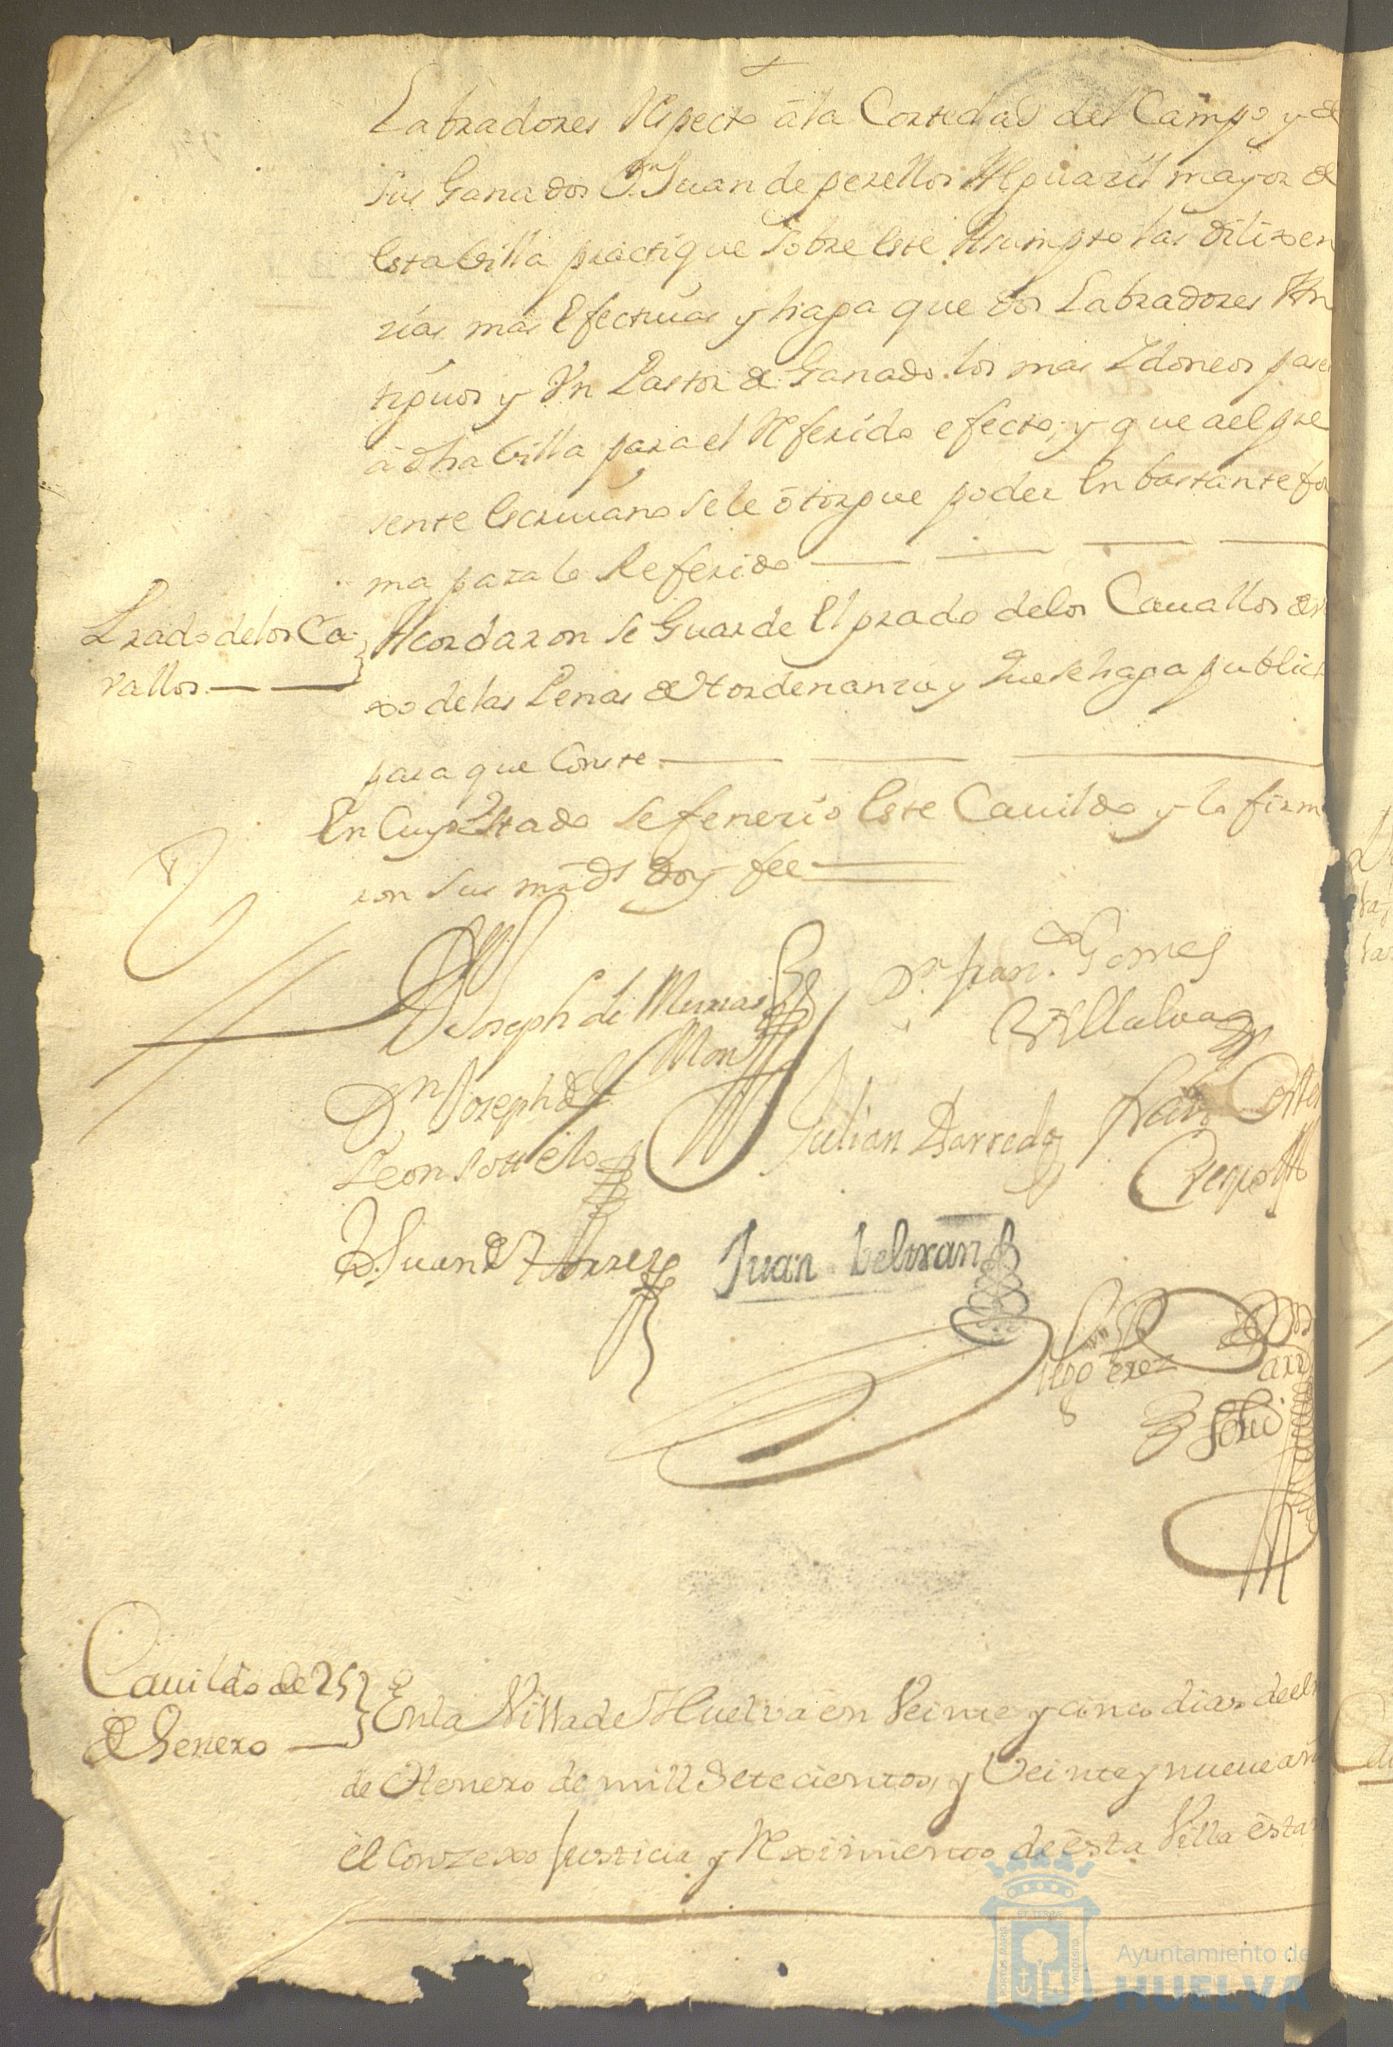 Labradores Respecto â la Cortedad del Campo y de
sus Ganados Dn Juan de perellos Alguazil mayor de
esta Villa practique sobre este Asumpto las dilixen
zias mas Efectiuas y haga que dos Labradores An
tiguos y Vn Pastor de Ganado los mas Ydoneos pasen
a dha Villa para el Referido efecto, y que a el pre
sente escriuano se le ôtorgue poder En bastante for
ma para lo Referido
Prado de los Ca
vallos
Acordaron se Guarde El prado de los Cauallos
xo de las Penas de Hordenanza y Que se haga publico
para que Conste
En Cuyo Estado se fenerio Este Cauildo y lo firma
ron sus mrds doy fee
Joseph de
Dn Fran.co Gomes
Villalva
Mon
Dn Joseph de
Leon Sottelo
Julian Barreda
Crespo
D. Juan de Torres
Juan beltran
Diego Perez
Cauildo de 25
de Henero
En la Villa de Huelva en Veinte y cinco dias de el
de Henero de mill Setecientos, y Veinte y nueue añ
el Conzexo Justicia y Reximiento de esta Villa estan
Ayuntamiento de
HUELVA